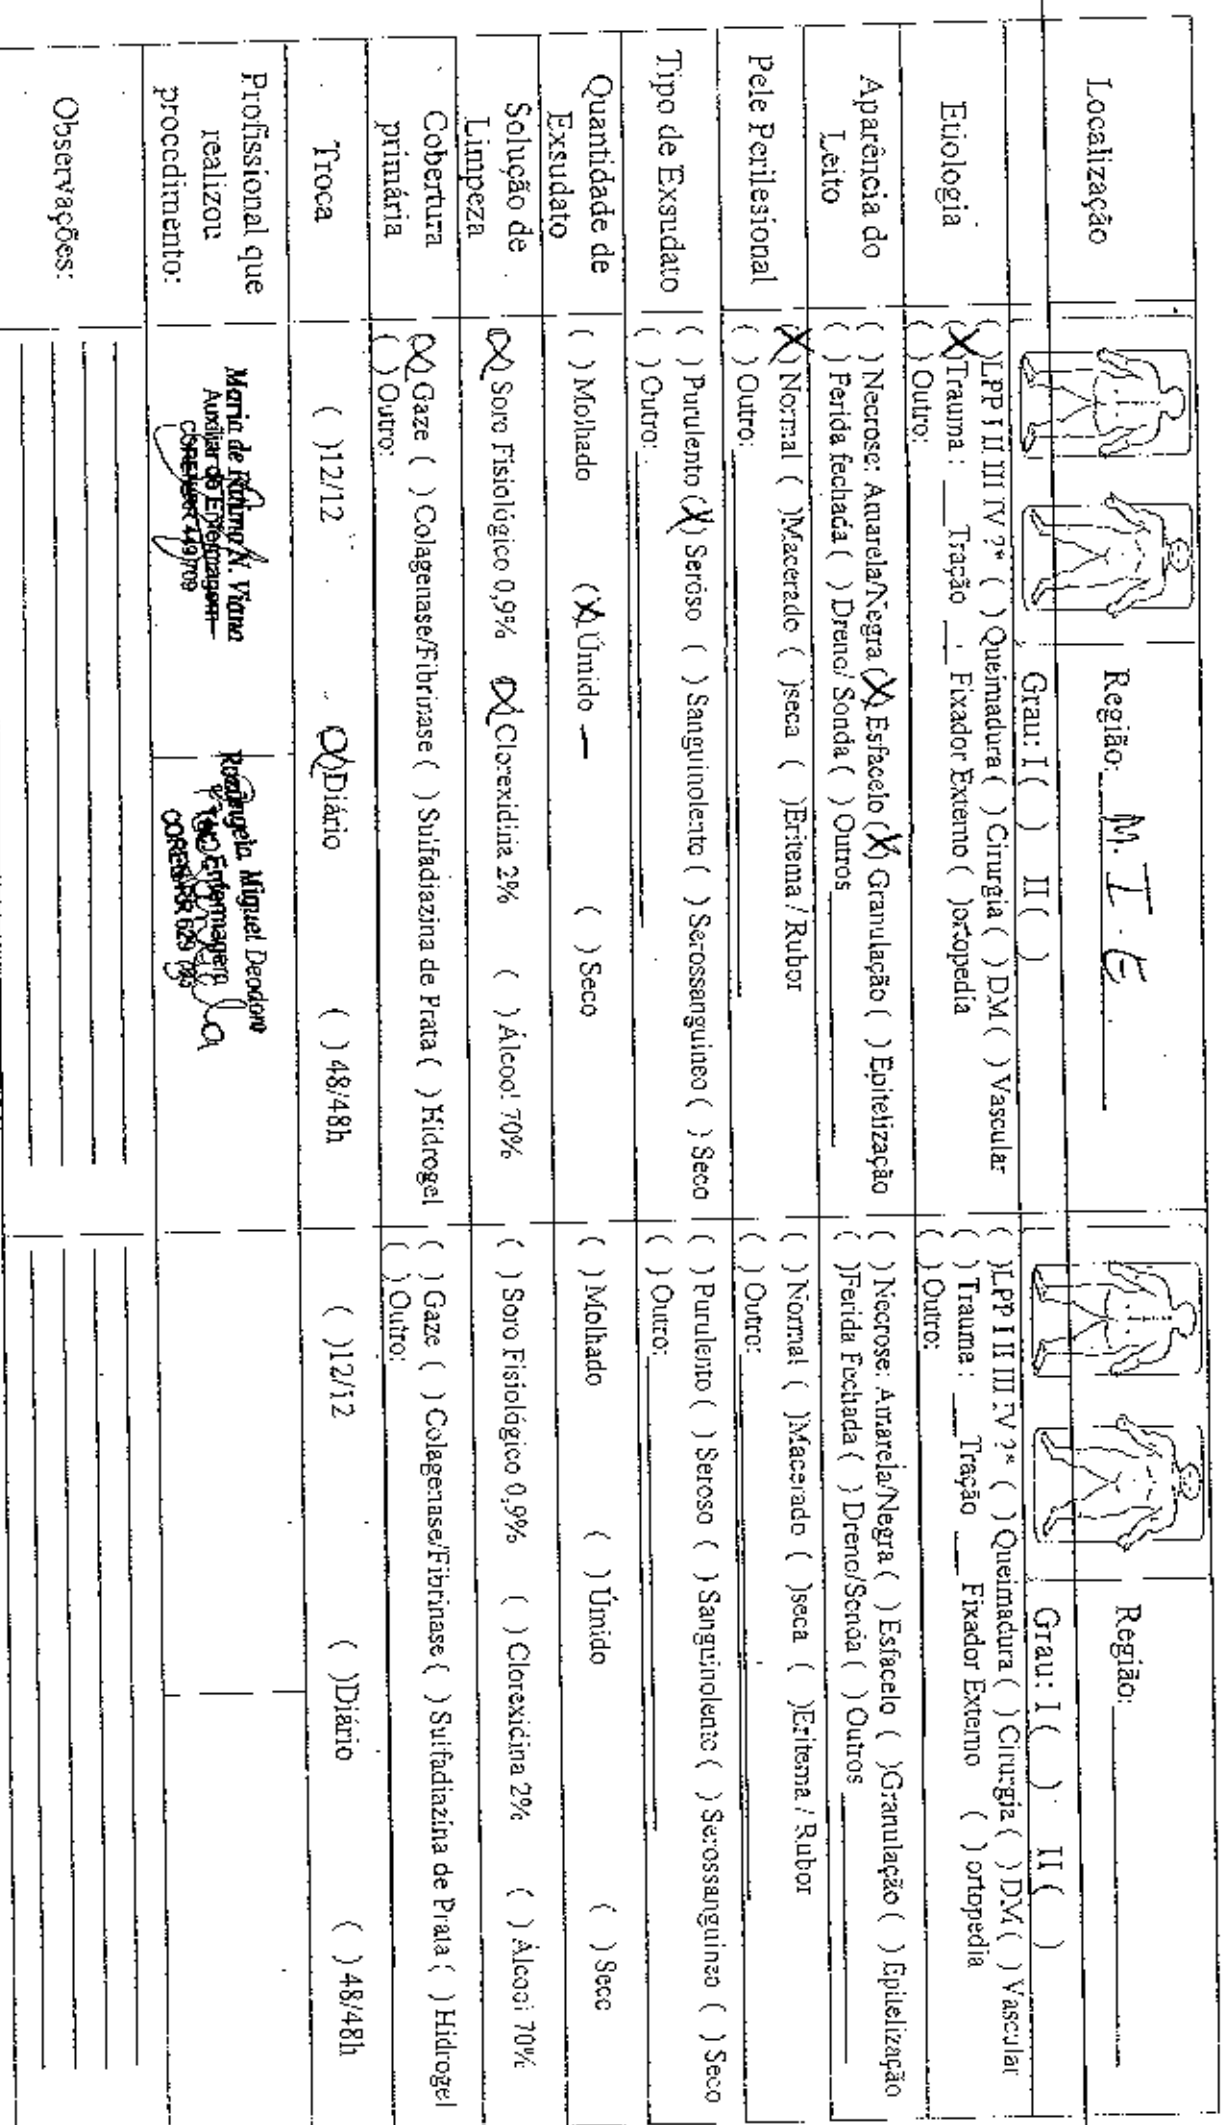 Localização
Região: M.I.E
Grau: I ( ) II ( )
Região:
Grau: I ( ) II ( )
Etiologia
( )LPP I II III IV ?* ( ) Queimadura ( ) Cirurgia ( ) DM ( ) Vascular
(X)Trauma : ___ Tração ___ Fixador Externo ( )ortopedia
( ) Outro:
( )LPP I II III IV ?* ( ) Queimadura ( ) Cirurgia ( ) DM ( ) Vascular
( ) Trauma : ___ Tração ___ Fixador Externo ( ) ortopedia
( ) Outro:
Aparência do
Leito
( ) Necrose: Amarela/Negra (X) Esfacelo (X) Granulação ( ) Epitelização
( ) Ferida fechada ( ) Dreno/ Sonda ( ) Outros
( ) Necrose: Amarela/Negra ( ) Esfacelo ( )Granulação ( ) Epitelização
( )Ferida Fechada ( ) Dreno/Sonda ( ) Outros
Pele Perilesional
(X) Normal ( )Macerado ( )seca ( )Eritema / Rubor
( ) Outro:
( ) Normal ( )Macerado ( )seca ( )Eritema / Rubor
( ) Outro:
Tipo de Exsudato
( ) Purulento (X) Seroso ( ) Sanguinolento ( ) Serossanguineo ( ) Seco
( ) Outro:
( ) Purulento ( ) Seroso ( ) Sanguinolento ( ) Serossanguineo ( ) Seco
( ) Outro:
Quantidade de
Exsudato
( ) Molhado (X) Úmido ( ) Seco
( ) Molhado ( ) Úmido ( ) Seco
Solução de
Limpeza
(X) Soro Fisiológico 0,9% (X) Clorexidina 2% ( ) Álcool 70%
( ) Soro Fisiológico 0,9% ( ) Clorexidina 2% ( ) Álcool 70%
Cobertura
primária
(X) Gaze ( ) Colagenase/Fibrinase ( ) Sulfadiazina de Prata ( ) Hidrogel
( ) Outro:
( ) Gaze ( ) Colagenase/Fibrinase ( ) Sulfadiazina de Prata ( ) Hidrogel
( ) Outro:
Troca
( )12/12 (X)Diário ( ) 48/48h
( )12/12 ( )Diário ( ) 48/48h
Profissional que
realizou
procedimento:
Maria de N. Viana
Auxiliar de Enfermagem
449709
Miguel Deodoro
Enfermagem
Observações: